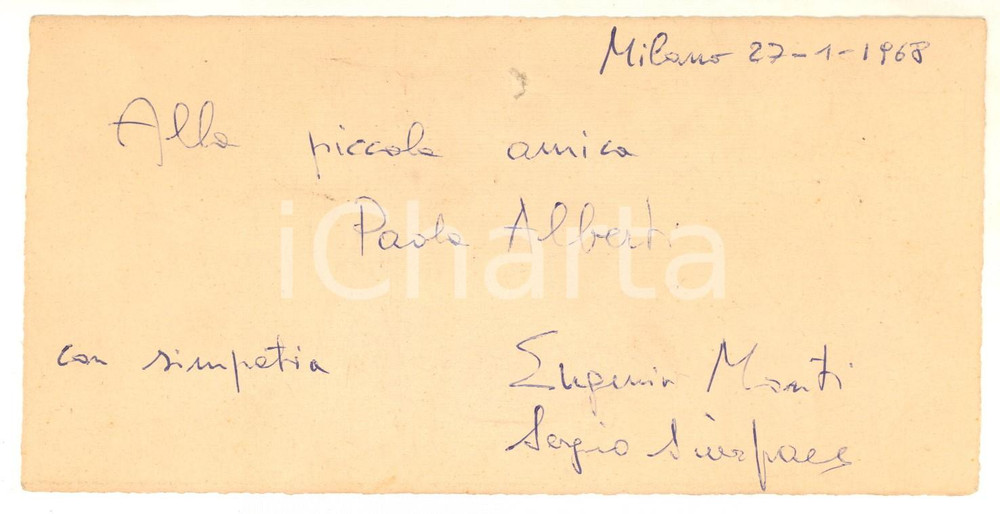 Milano 27-1-1968
Alla piccola amica
Paola Alberti
iCharta
con simpatia
Eugenio Monti
Sergio Siorpaes